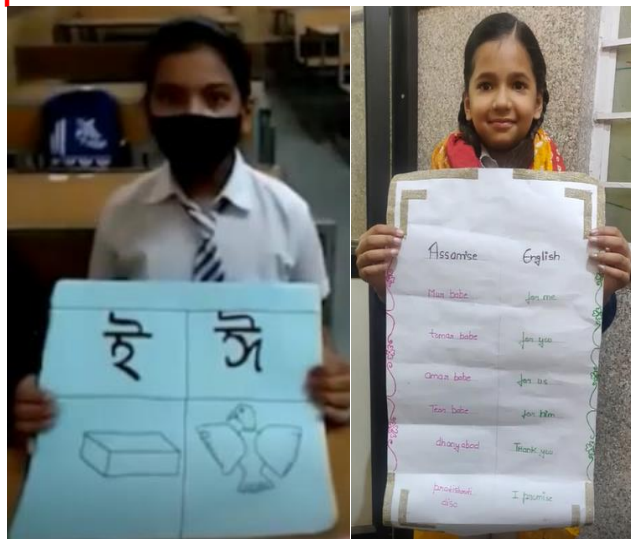 ই ঈ
Assamise English
Mur babe for me
tumar babe for you
amar babe for us
Tear babe for him
dhanyabad Thank you
I promise